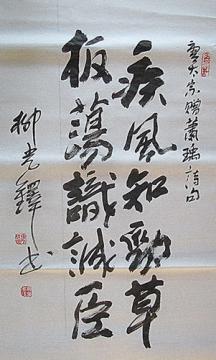 唐太宗贈蕭瑀詩句
疾風知勁草
板蕩識誠臣
柳光鐸書